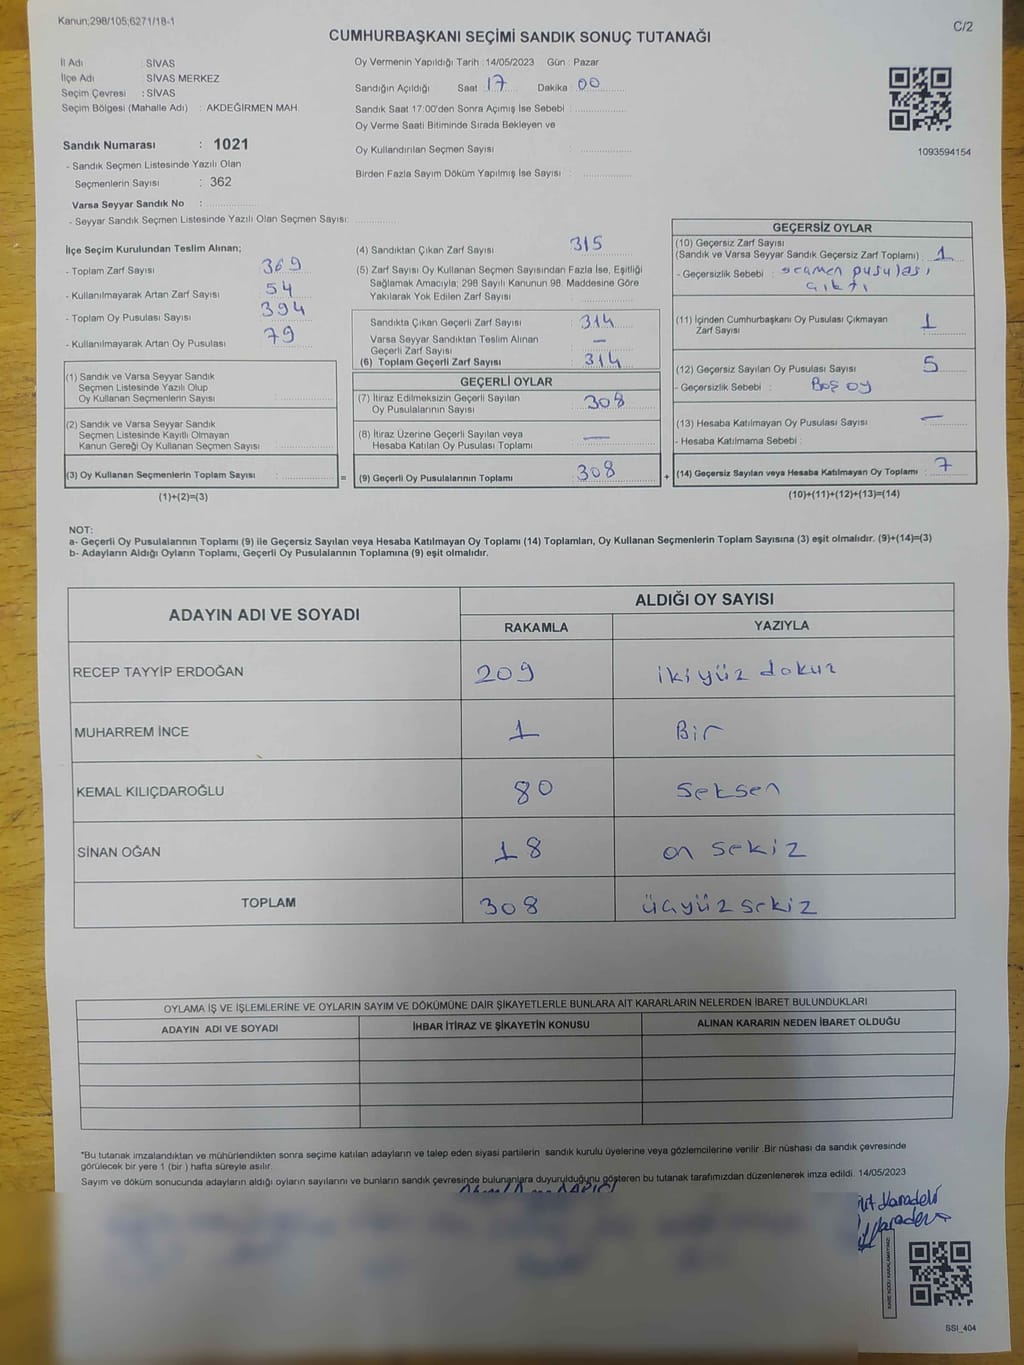 Kanun;298/105;6271/18-1
C/2
CUMHURBAŞKANI SEÇİMİ SANDIK SONUÇ TUTANAĞI
İl Adı : SİVAS
İlçe Adı : SİVAS MERKEZ
Seçim Çevresi : SİVAS
Seçim Bölgesi (Mahalle Adı) : AKDEĞİRMEN MAH.
Sandık Numarası : 1021
- Sandık Seçmen Listesinde Yazılı Olan
Seçmenlerin Sayısı : 362
Varsa Seyyar Sandık No :
- Seyyar Sandık Seçmen Listesinde Yazılı Olan Seçmen Sayısı:
Oy Vermenin Yapıldığı Tarih : 14/05/2023 Gün : Pazar
Sandığın Açıldığı Saat 17 Dakika 00
Sandık Saat 17:00'den Sonra Açımış İse Sebebi :
Oy Verme Saati Bitiminde Sırada Bekleyen ve
Oy Kullandırılan Seçmen Sayısı :
Birden Fazla Sayım Döküm Yapılmış İse Sayısı :
1093594154
İlçe Seçim Kurulundan Teslim Alınan;
- Toplam Zarf Sayısı 369
- Kullanılmayarak Artan Zarf Sayısı : 54
- Toplam Oy Pusulası Sayısı : 394
- Kullanılmayarak Artan Oy Pusulası : 79
(1) Sandık ve Varsa Seyyar Sandık
Seçmen Listesinde Yazılı Olup
Oy Kullanan Seçmenlerin Sayısı :
(2) Sandık ve Varsa Seyyar Sandık
Seçmen Listesinde Kayıtlı Olmayan
Kanun Gereği Oy Kullanan Seçmen Sayısı :
(3) Oy Kullanan Seçmenlerin Toplam Sayısı :
(1)+(2)=(3)
=
(4) Sandıktan Çıkan Zarf Sayısı : 315
(5) Zarf Sayısı Oy Kullanan Seçmen Sayısından Fazla İse, Eşitliği
Sağlamak Amacıyla; 298 Sayılı Kanunun 98. Maddesine Göre
Yakılarak Yok Edilen Zarf Sayısı :
Sandıkta Çıkan Geçerli Zarf Sayısı : 314
Varsa Seyyar Sandıktan Teslim Alınan
Geçerli Zarf Sayısı : —
(6) Toplam Geçerli Zarf Sayısı : 314
GEÇERLİ OYLAR
(7) İtiraz Edilmeksizin Geçerli Sayılan
Oy Pusulalarının Sayısı : 308
(8) İtiraz Üzerine Geçerli Sayılan veya
Hesaba Katılan Oy Pusulası Toplamı : —
(9) Geçerli Oy Pusulalarının Toplamı : 308
+
GEÇERSİZ OYLAR
(10) Geçersiz Zarf Sayısı
(Sandık ve Varsa Seyyar Sandık Geçersiz Zarf Toplamı) : 1
- Geçersizlik Sebebi : seçmen pusulası
çıktı
(11) İçinden Cumhurbaşkanı Oy Pusulası Çıkmayan
Zarf Sayısı : 1
(12) Geçersiz Sayılan Oy Pusulası Sayısı : 5
- Geçersizlik Sebebi : Boş oy
(13) Hesaba Katılmayan Oy Pusulası Sayısı : —
- Hesaba Katılmama Sebebi :
(14) Geçersiz Sayılan veya Hesaba Katılmayan Oy Toplamı : 7
(10)+(11)+(12)+(13)=(14)
NOT:
a- Geçerli Oy Pusulalarının Toplamı (9) ile Geçersiz Sayılan veya Hesaba Katılmayan Oy Toplamı (14) Toplamları, Oy Kullanan Seçmenlerin Toplam Sayısına (3) eşit olmalıdır. (9)+(14)=(3)
b- Adayların Aldığı Oyların Toplamı, Geçerli Oy Pusulalarının Toplamına (9) eşit olmalıdır.
ADAYIN ADI VE SOYADI ALDIĞI OY SAYISI
RAKAMLA YAZIYLA
RECEP TAYYİP ERDOĞAN 209 iki yüz dokuz
MUHARREM İNCE 1 Bir
KEMAL KILIÇDAROĞLU 80 Seksen
SİNAN OĞAN 18 on sekiz
TOPLAM 308 üçyüz sekiz
OYLAMA İŞ VE İŞLEMLERİNE VE OYLARIN SAYIM VE DÖKÜMÜNE DAİR ŞİKAYETLERLE BUNLARA AİT KARARLARIN NELERDEN İBARET BULUNDUKLARI
ADAYIN ADI VE SOYADI İHBAR İTİRAZ VE ŞİKAYETİN KONUSU ALINAN KARARIN NEDEN İBARET OLDUĞU
*Bu tutanak imzalandıktan ve mühürlendikten sonra seçime katılan adayların ve talep eden siyasi partilerin sandık kurulu üyelerine veya gözlemcilerine verilir. Bir nüshası da sandık çevresinde
görülecek bir yere 1 (bir) hafta süreyle asılır.
Sayım ve döküm sonucunda adayların aldığı oyların sayılarını ve bunların sandık çevresinde bulunanlara duyurulduğunu gösteren bu tutanak tarafımızdan düzenlenerek imza edildi. 14/05/2023
SSİ_404